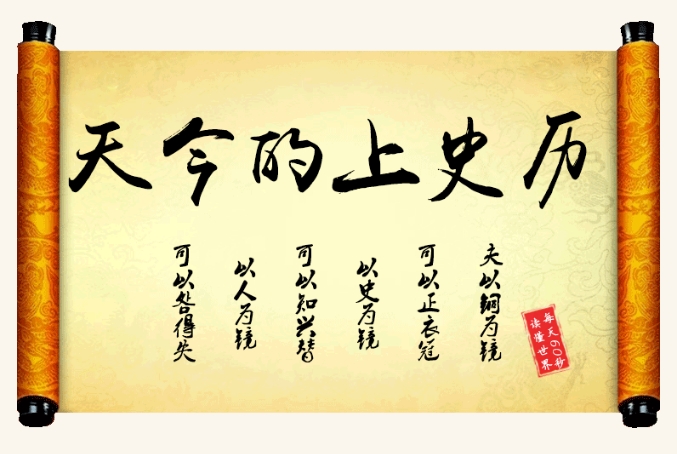 历史上的今天
夫以铜为镜
可以正衣冠
以史为镜
可以知兴替
以人为镜
可以咎得失
每天60秒
读懂世界